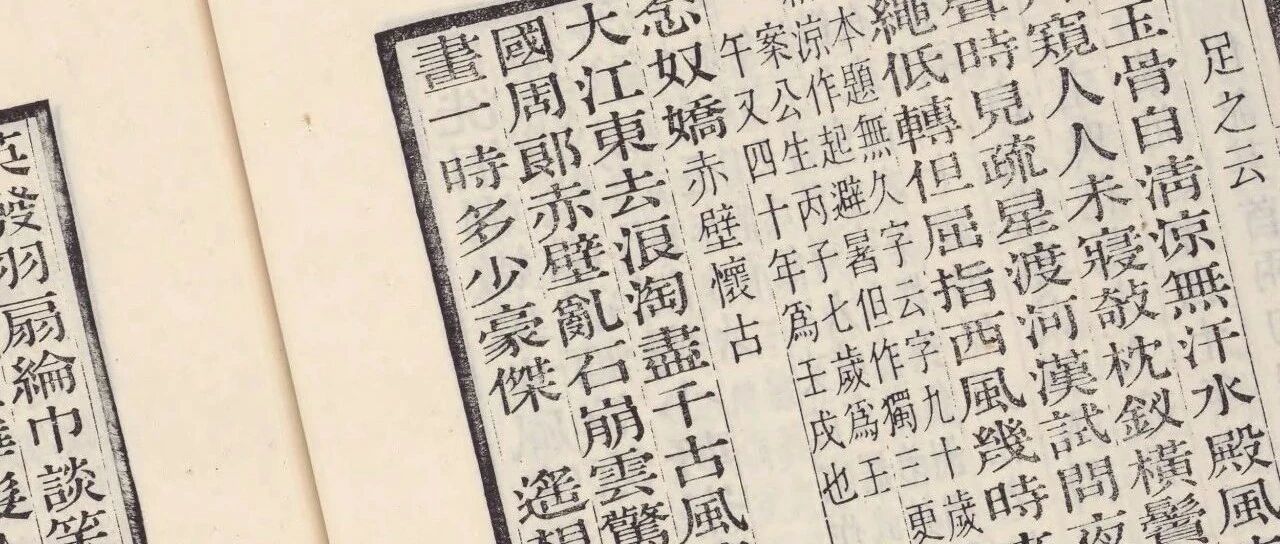 足之云
玉骨自清涼無汗水殿風
窺人人未寢攲枕釵橫鬢
聲時見疏星渡河漢試問夜
繩低轉但屈指西風幾時
本題無久字云字九十歲
涼作起避暑但作獨三更
案公生丙子七歲爲壬
午又四十年爲壬戌也
念奴嬌 赤壁懷古
大江東去浪淘盡千古風
國周郎赤壁亂石崩雲驚
畫一時多少豪傑 遙想
英發羽扇綸巾談笑